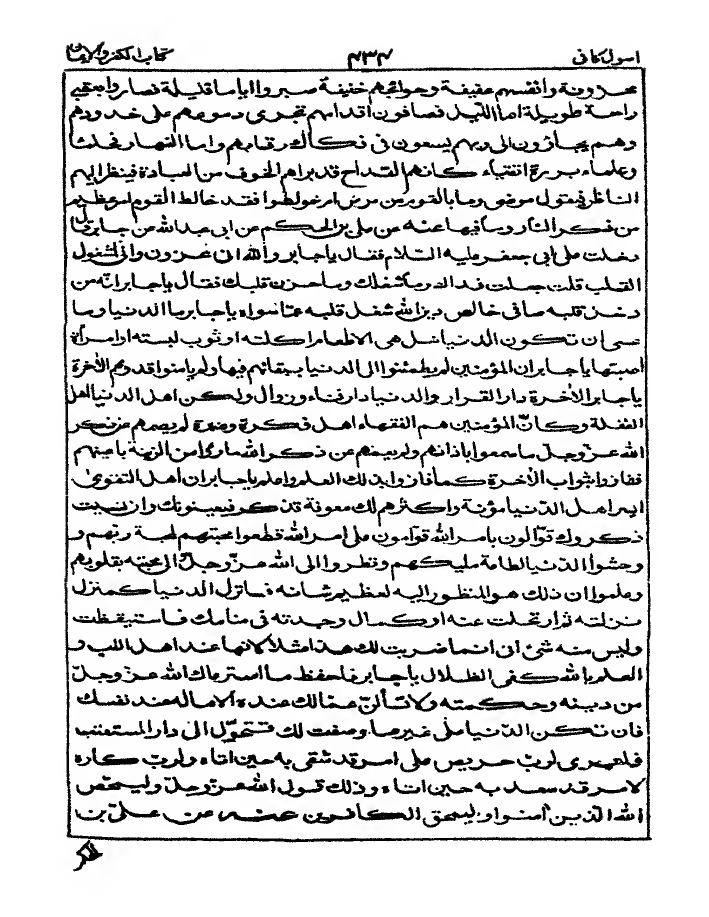 اسول كافى ٤٣٤ كتاب الكفر والايمان
محزونة وانفسهم عفيفة وحوائجهم خفيفة صبروا اياما قليلة فصاروا بعقبى
راحة طويلة اما الليل فصافون اقدامهم تجرى دموعهم على خدودهم
وهم يجأرون الى ربهم يسعون فى فكاك رقابهم واما النهار فحلماء
علماء بررة اتقياء كانهم القداح قد براهم الخوف من العبادة فينظر اليهم
الناظر فيقول مرضى وما بالقوم من مرض ام خولطوا فقد خالط القوم امر عظيم
من ذكر النار وما فيها عنه عن على بن الحكم عن ابى عبدالله عن جابر قال
دخلت على ابى جعفر عليه السلام فقال يا جابر والله انى لمحزون وانى لمشغول
القلب قلت جعلت فداك وما شغلك وما حزن قلبك فقال يا جابر انه من
دخل قلبه صافى خالص دين الله شغل قلبه عما سواه يا جابر ما الدنيا وما
عسى ان تكون الدنيا هل هى الا طعام اكلته او ثوب لبسته او امرأة
اصبتها يا جابر ان المؤمنين لم يطمئنوا الى الدنيا ببقائهم فيها ولم يامنوا قدومهم الاخرة
يا جابر الاخرة دار القرار والدنيا دار فناء وزوال ولكن اهل الدنيا اهل
الغفلة وكان المؤمنين هم الفقهاء اهل فكرة وعبرة لم يصمهم عن ذكر
الله عز وجل ما سمعوا باذانهم ولم يعمهم عن ذكر الله ما راوا من الزينة باعينهم
ففازوا بثواب الاخرة كما فازوا بذلك العلم واعلم يا جابر ان اهل التقوى
ايسر اهل الدنيا مؤنة واكثرهم لك معونة تذكر فيعينونك وان نسيت
ذكروك قوالون بامر الله قوامون على امر الله قطعوا محبتهم لمحبة ربهم و
وحشوا الدنيا لطاعة مليكهم ونظروا الى الله عز وجل الى محبته بقلوبهم
وعلموا ان ذلك هو المنظور اليه لعظيم شانه فانزل الدنيا كمنزل
نزلته ثم ارتحلت عنه او كمال وجدته فى منامك فاستيقظت
وليس معك منه شئ انى انما ضربت لك هذا مثلا لانها عند اهل اللب و
العلم بالله كفئ الظلال يا جابر فاحفظ ما استرعاك الله عز وجل
من دينه وحكمته ولا تسألن عما لك عنده الا ما له عند نفسك
فان تكن الدنيا على غير ما وصفت لك فتحول الى دار المستعتب
فلعمرى لرب حريص على امر قد شقى به حين اتاه ولرب كاره
لامر قد سعد به حين اتاه وذلك قول الله عز وجل وليمحص
الله الذين آمنوا ويمحق الكافرين عنه عن على بن